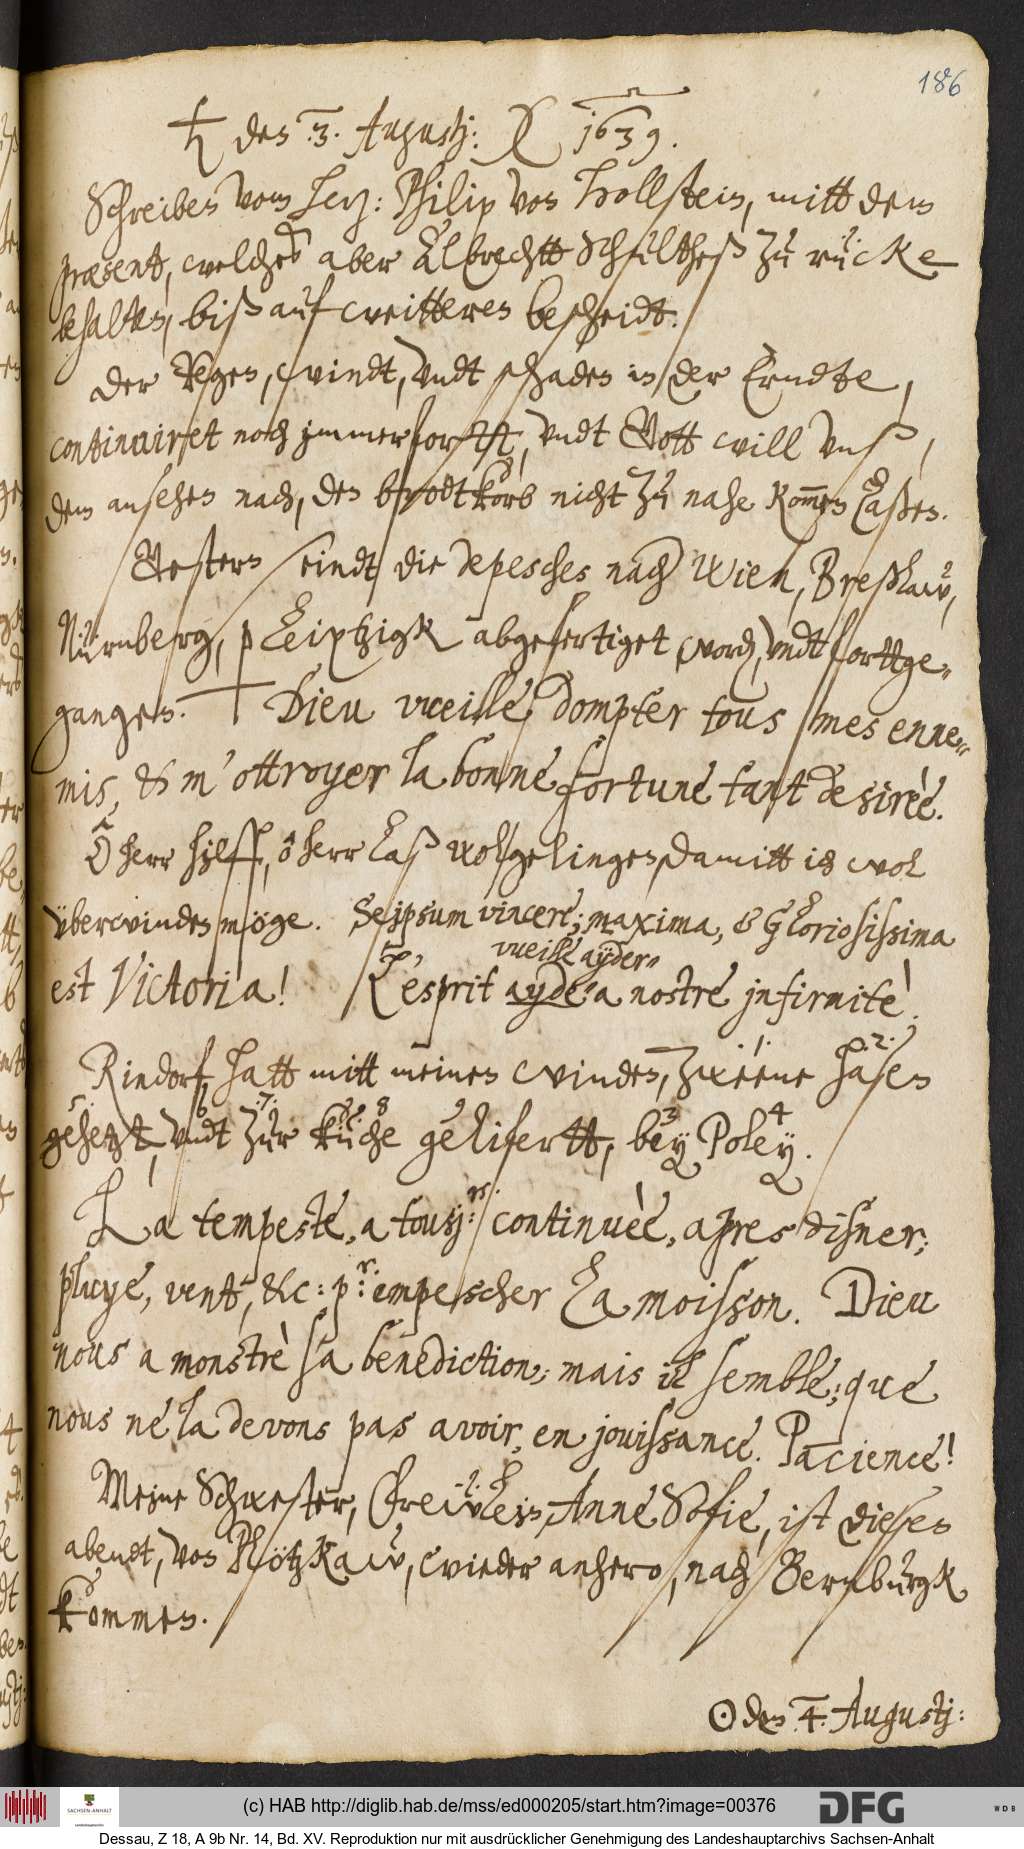 186
♄ den 3. Augustj: 1639.
Schreiben vom Herz: Philip von Hollstein, mitt dem
præsent, welches aber Albrechtt Schultheß zu rücke
behalten, biß auf weitteren bescheidt.
Der Regen, windt, undt schaden in der Erndte,
continuiret noch immerfortt, undt Gott will unß,
dem ansehen nach, den brodtkorb nicht zu nahe kommen laßen.
Gestern seindt die depesches nach Wien, Breßlaw,
Nürnberg, p Leiptzigk abgefertiget word, undt fortge-
gangen. Dieu vueille, dompter tous mes enne-
mis, & m'ottroyer la bonne fortune tant desirèe.
Ô herr hilff, ô herr laß wolgelingen, damitt ich wol
überwinden möge. Seipsum vincere; maxima, & Gloriosissima
vueille ayder
est Victoria! L'esprit ayde a nostre infirmitè.
Rindorf, hatt mitt meinen winden, 1. zweene 2. hasen
5. gehetzt, 6 undt 7. zur 8 küche 9 gelifertt, 3 bey 4 Poley.
La tempeste, a tousj:rs continuèe, apres disner;
pluye, vent, &c: p:r empescher la moisson. Dieu
nous a monstrè sa benediction; mais il semble; que
nous ne la devons pas avoir, en jouissance. Pacience!
Meine Schwester, Frewlein, Anne Sofie, ist diesen
abendt, von Plötzkaw, wieder anhero, nach Bernburgk
kommen.
☉ den 4. Augustj:
(c) HAB http://diglib.hab.de/mss/ed000205/start.htm?image=00376
SACHSEN-ANHALT
DFG
WDB
Dessau, Z 18, A 9b Nr. 14, Bd. XV. Reproduktion nur mit ausdrücklicher Genehmigung des Landeshauptarchivs Sachsen-Anhalt